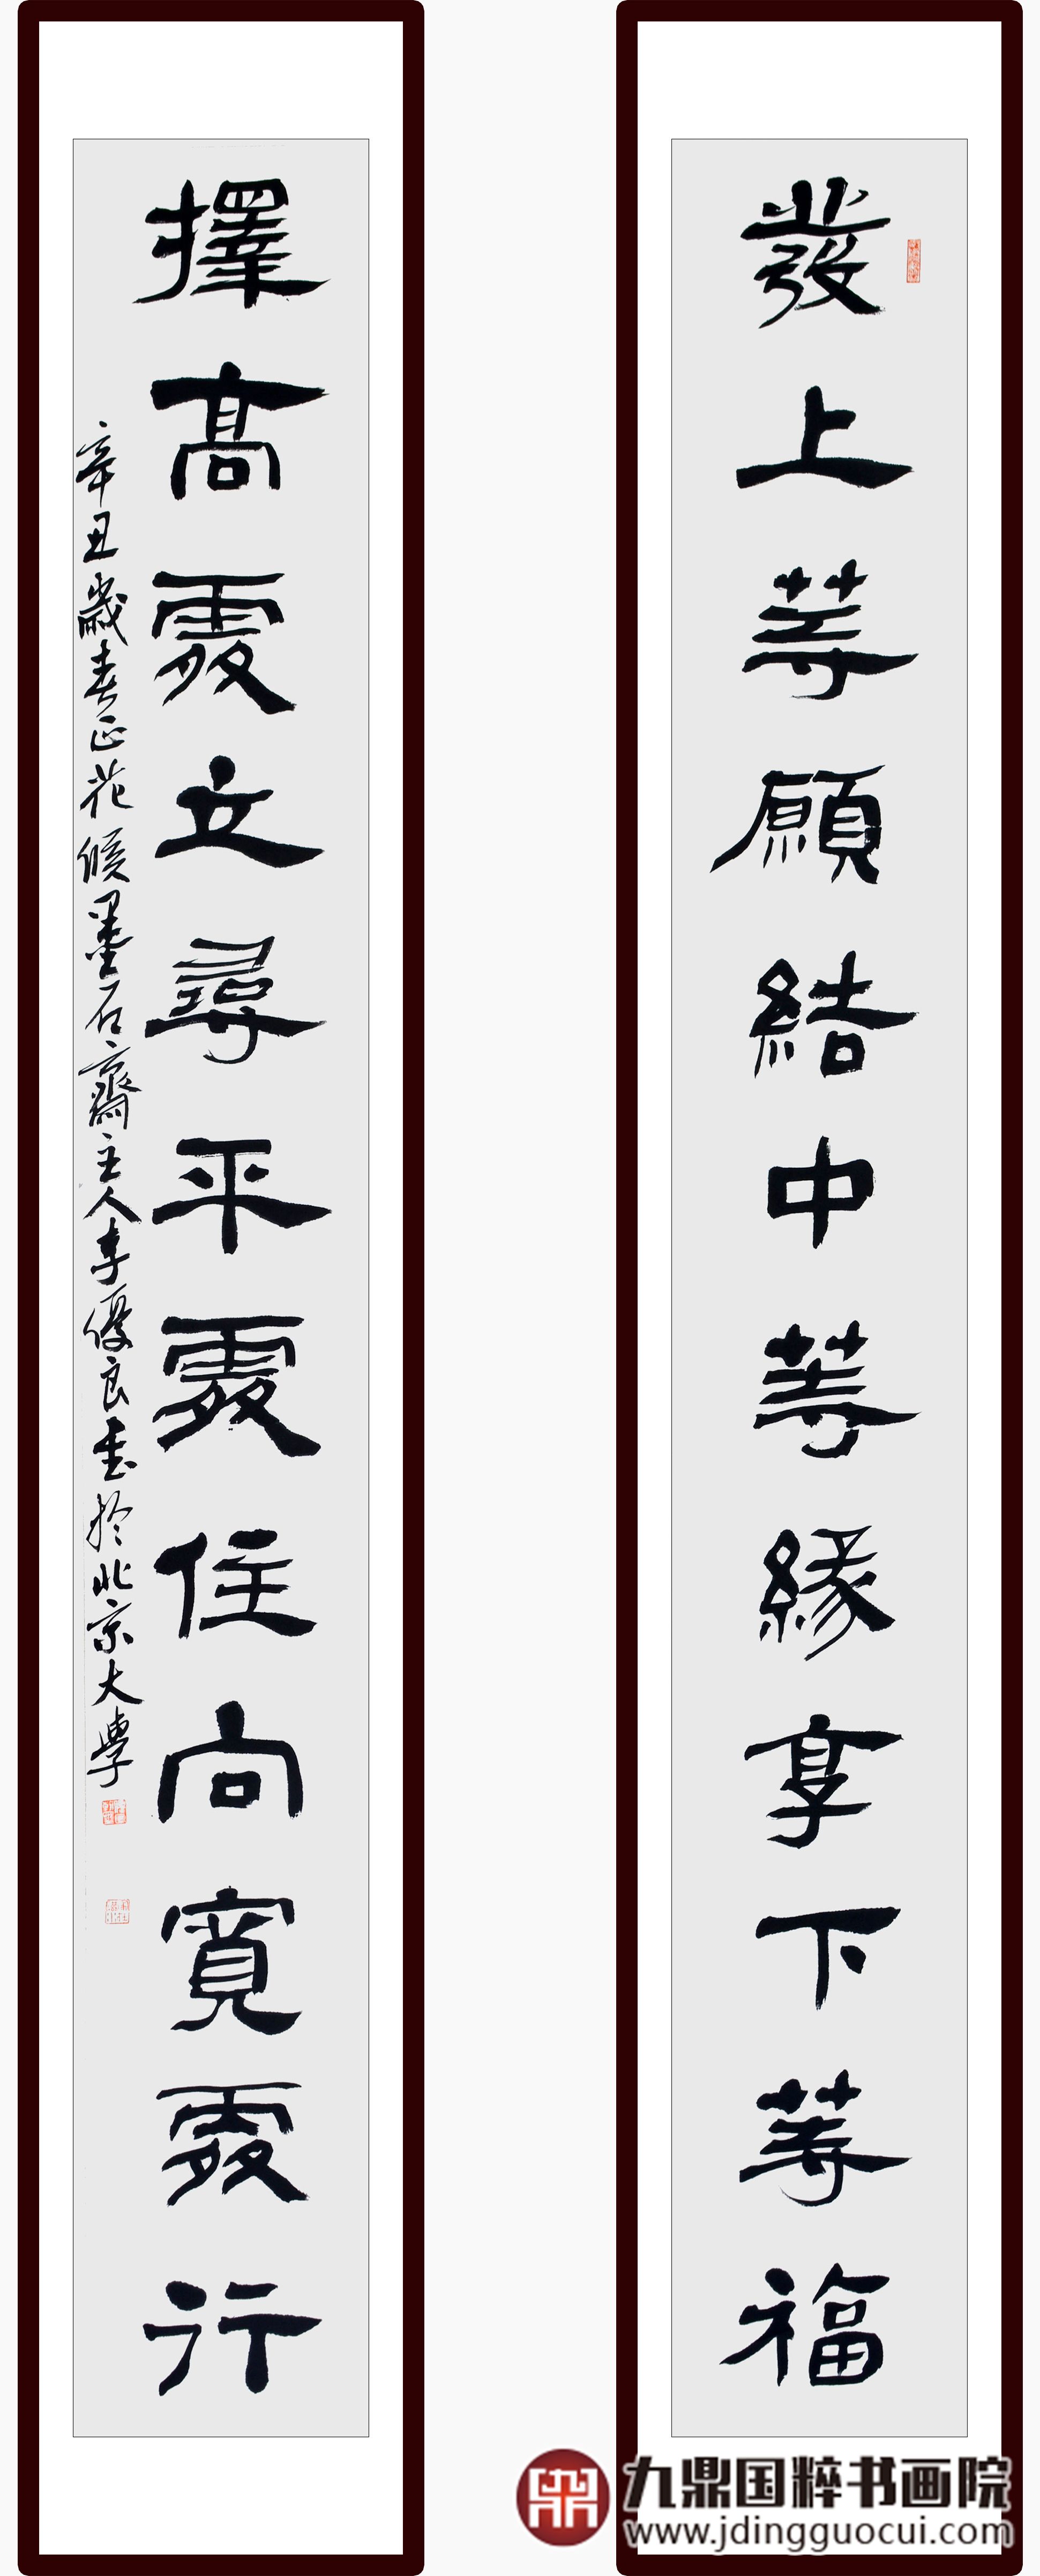 發上等願結中等緣享下等福
擇高處立尋平處住向寬處行
辛丑歲春正花候墨石齋主人李優良書於北京大學
九鼎国粹书画院
www.jdingguocui.com